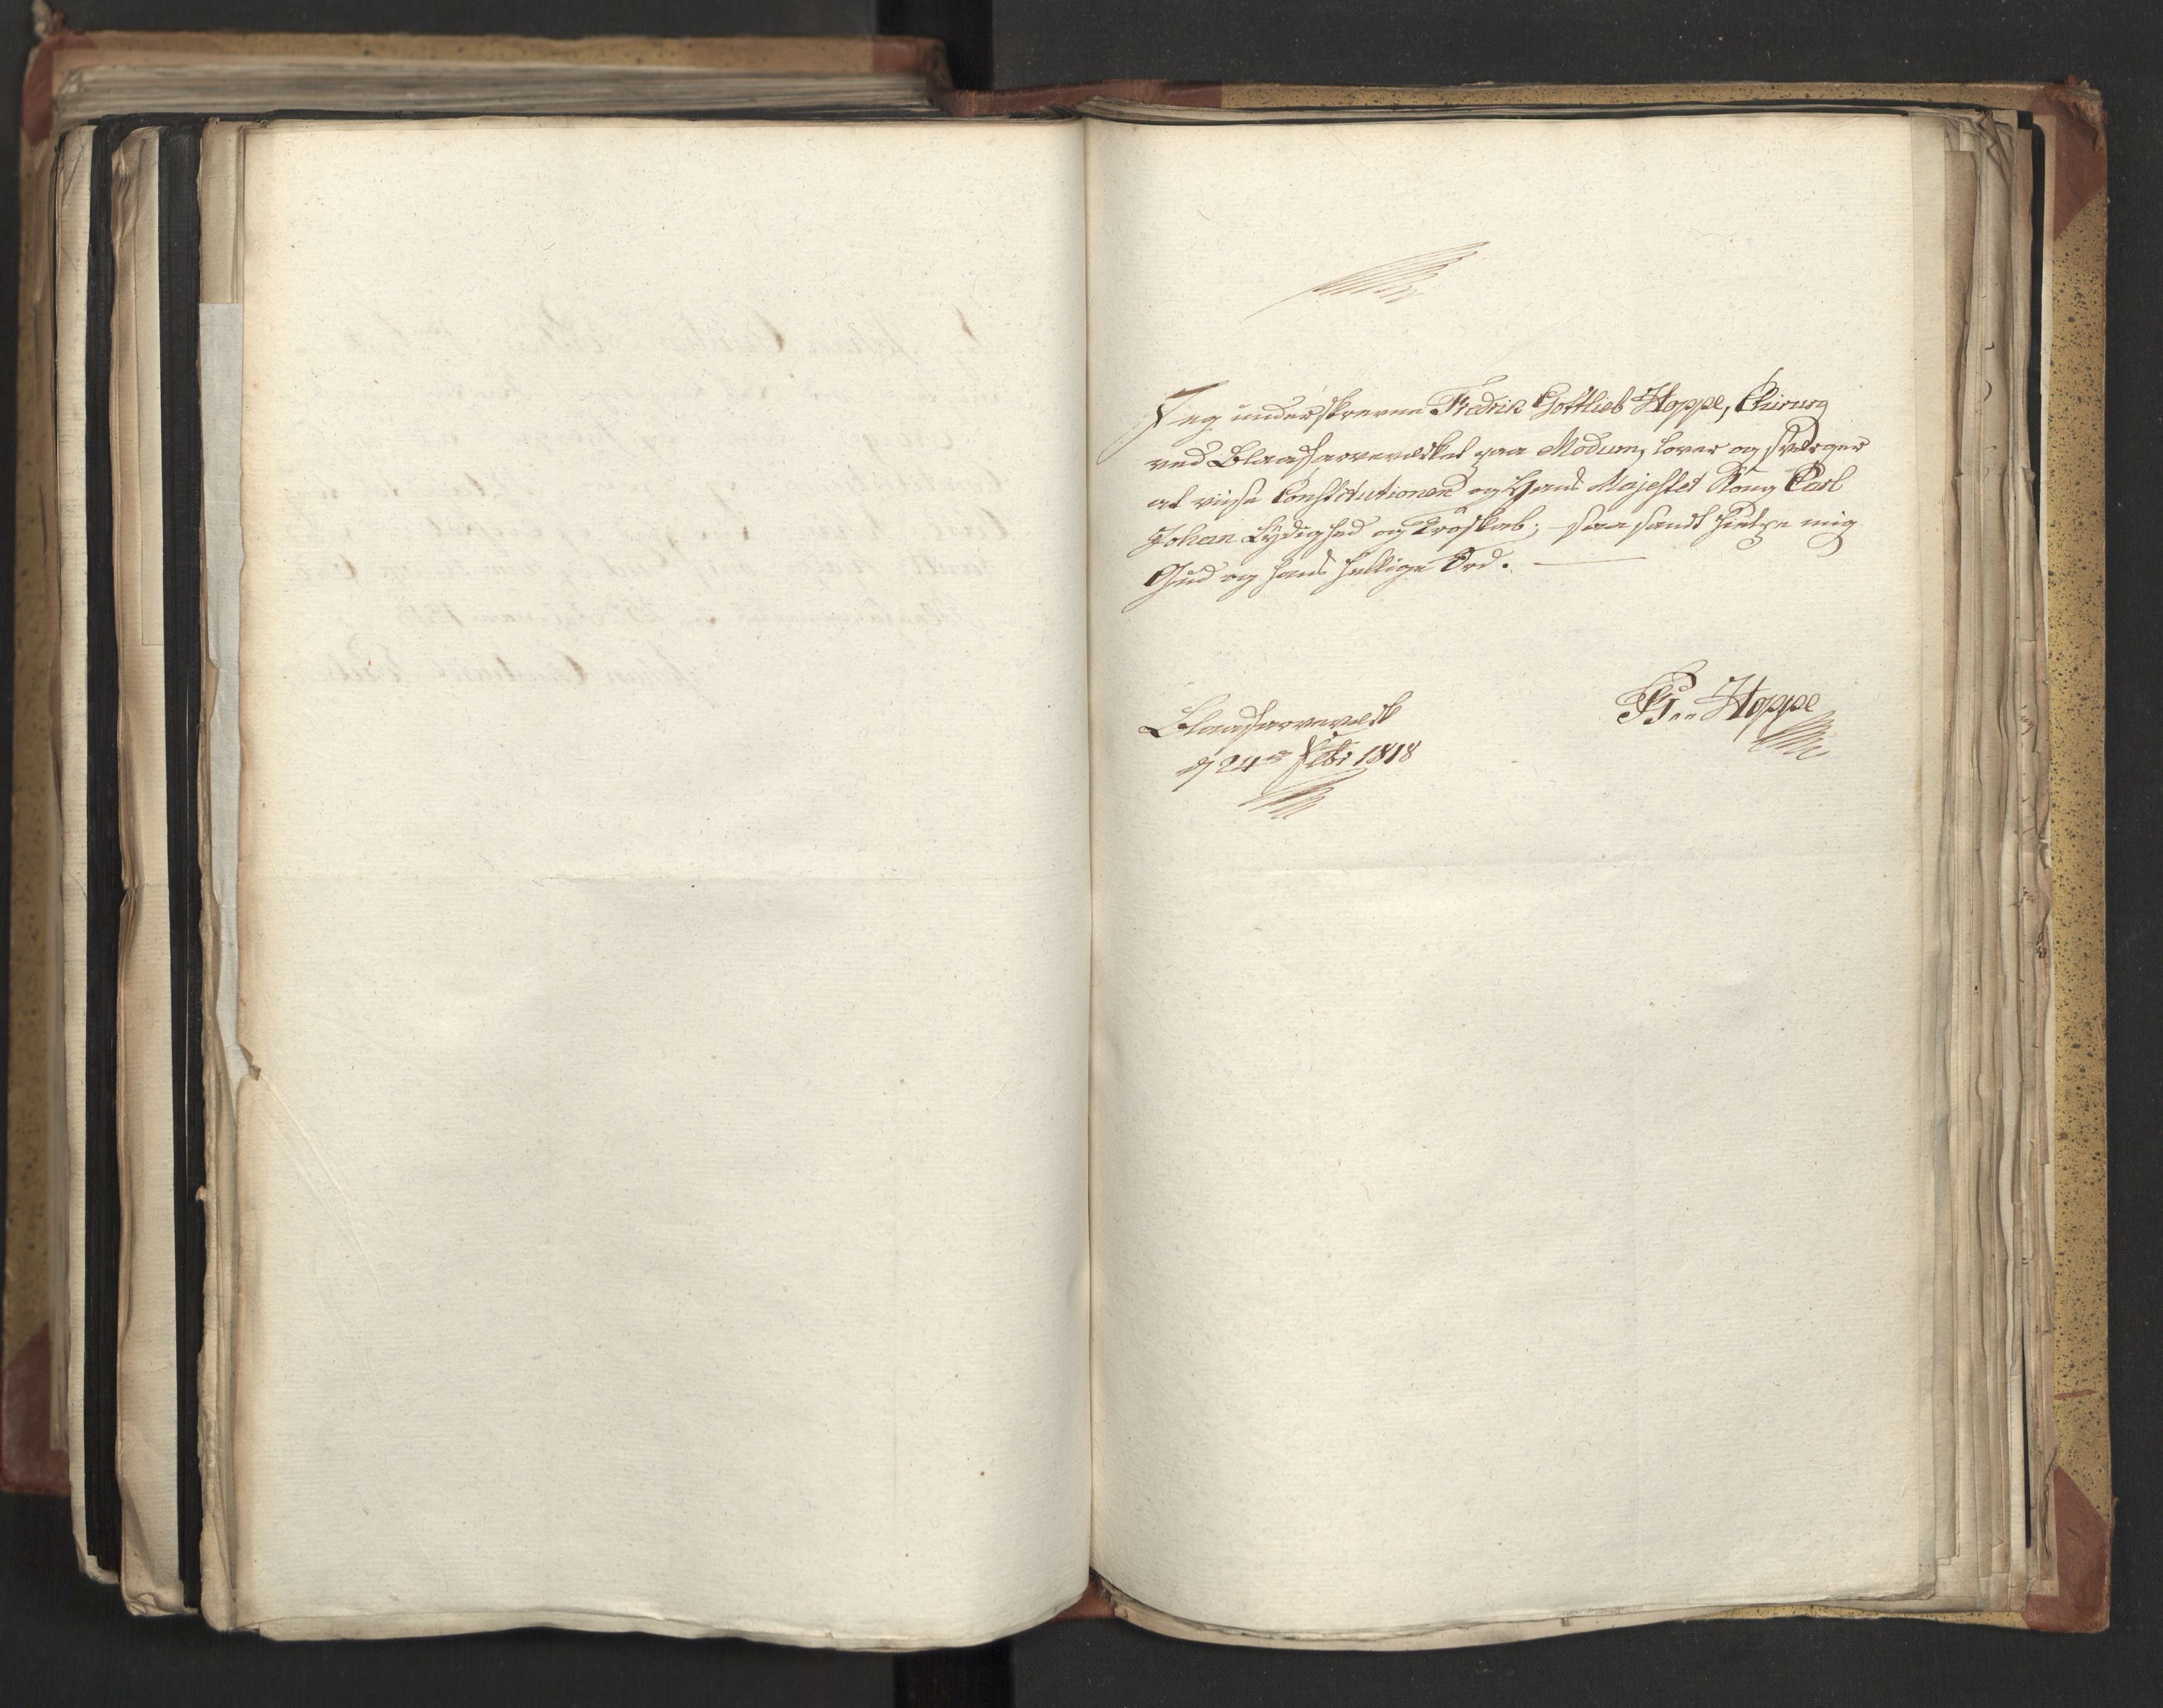 Jeg underskrevne Fredrik Gottlieb Hoppe, Chirurg
ved Blaafarveverket paa Modum, lover og sværger
at viise Constitutionen og Hans Majestet Kong Carl
Johan Lydighed og Troskab; saa sandt hielpe mig
Gud og hans hellige Ord.
Hoppe
Blaafarveverk
d 24de Febr 1818